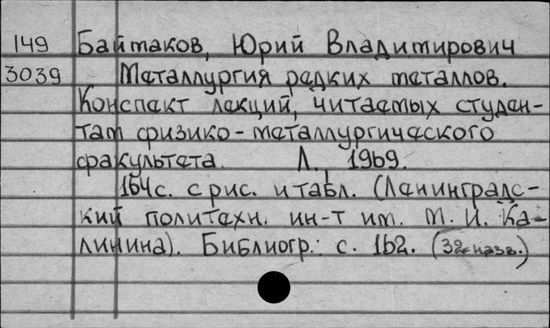 149 Байтаков, Юрий Владимирович
3039 Металлургия редких металлов.
Конспект лекций, читаемых студен-
там физико-металлургического
факультета. Л., 1969.
164с. с рис. и табл. (Ленинградс-
кий политехн. ин-т им. М. И. Ка-
линина). Библиогр.: с. 162. (32 назв.)